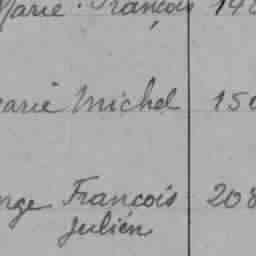 Marie François 14
Marie Michel 150
nge François 208
Julien